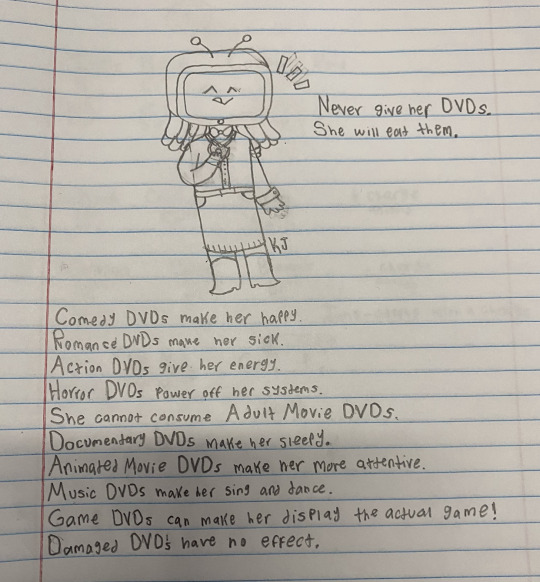 Never give her DVDs.
She will eat them.
KJ
Comedy DVDs make her happy.
Romance DVDs make her sick.
Action DVDs give her energy.
Horror DVDs Power off her systems.
She cannot consume Adult Movie DVDs.
Documentary DVDs make her sleepy.
Animated Movie DVDs make her more attentive.
Music DVDs make her sing and dance.
Game DVDs can make her display the actual game!
Damaged DVDs have no effect.